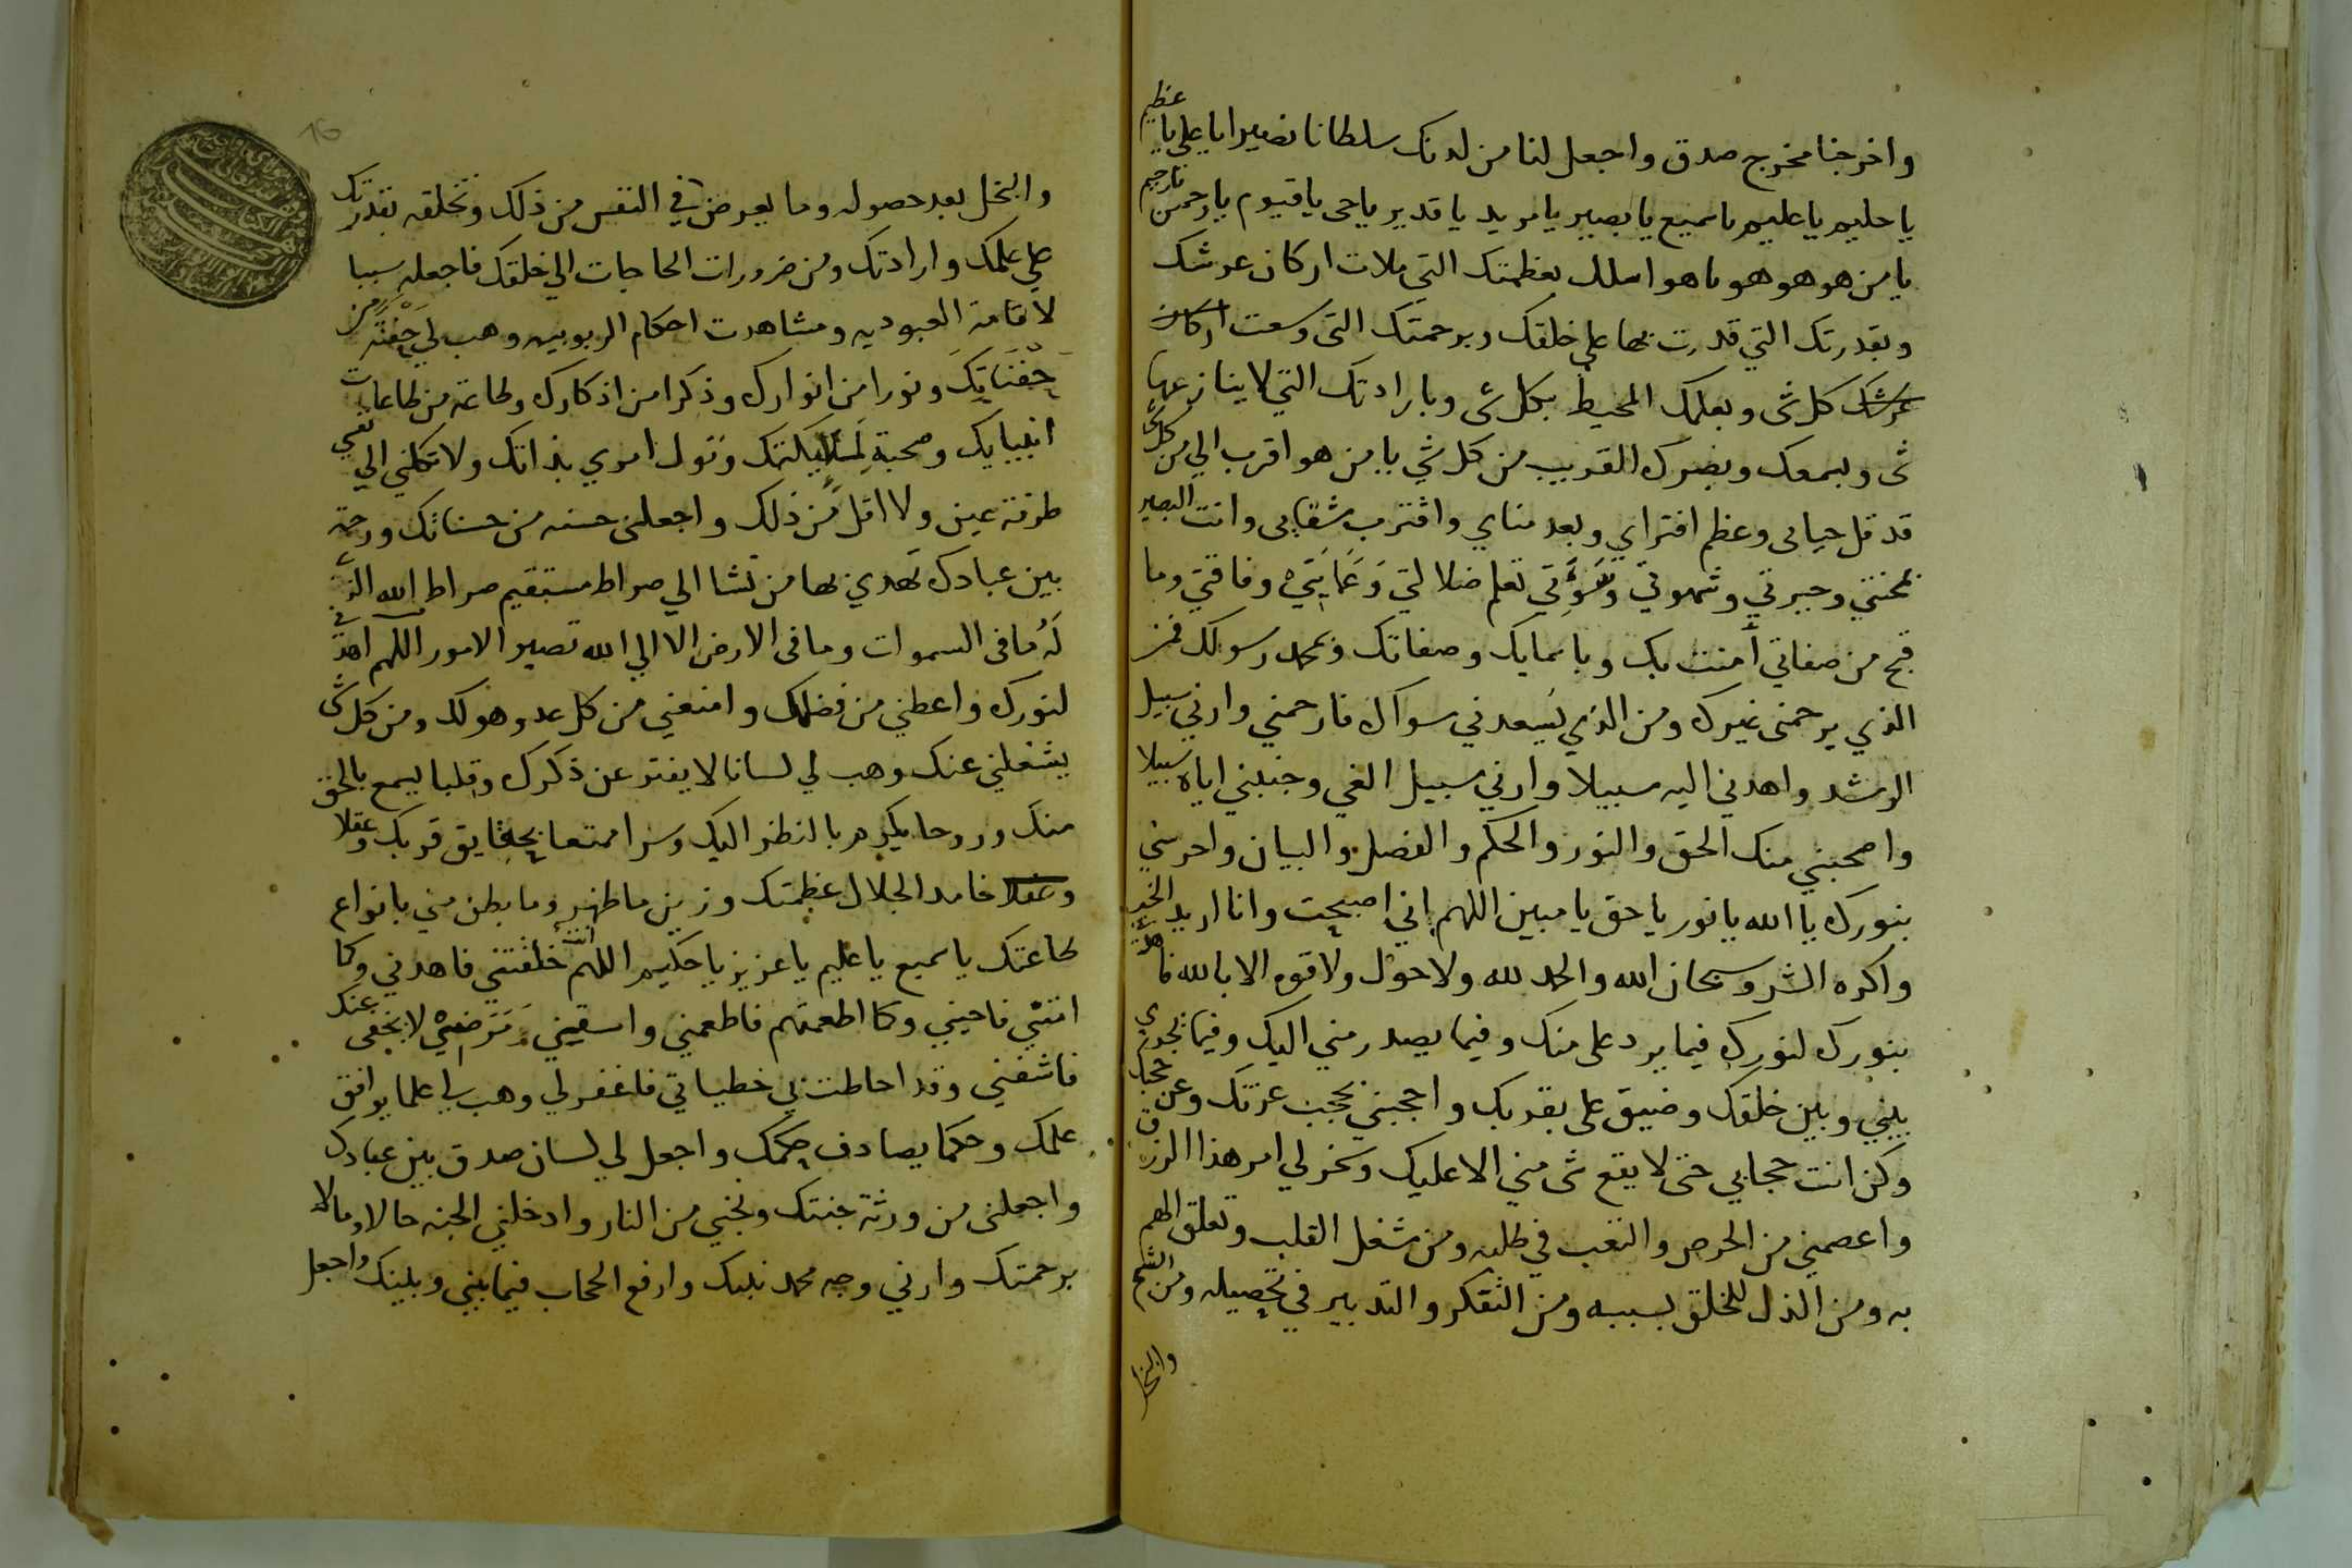 واخرجنا مخرج صدق واجعل لنا من لدنك سلطانا نصيرا يا علي يا عظيم
يا حليم يا عليم يا سميع يا بصير يا مريد يا قدير يا حى يا قيوم يا رحمن يا رحيم
يا من هو هو هو يا هو اسلك بعظمتك التي ملات اركان عرشك
وبقدرتك التي قدرت بها على خلقك وبرحمتك التى وسعت اركان
عرشك كل شى وبعلمك المحيط بكل شى وبارادتك التي لا ينازعها
شى وبسمعك وبصرك القريب من كل شي يا من هو اقرب الي من كل شى
قد قل حياى وعظم افتراي وبعد مناي واقترب شقايى وانت البصير
بمحنتي وحيرتي وشهوتي وسوءتي تعلم ضلالتي وعمايتي وفاقتي وما
قبح من صفاتي أمنت بك وباسمايك وصفاتك وبمحمد رسولك فمن
الذي يرحمنى غيرك ومن الذي يسعدني سواك فارحمني وارني سبيل
الرشد واهدني اليه سبيلا وارني سبيل الغي وجنبني اياه سبيلا
واصحبني منك الحق والنور والحكم والفصل والبيان واحرسني
بنورك يا الله يا نور يا حق يا مبين اللهم اني اصبحت وانا اريد الخير
واكره الشر وسبحان الله والحمد لله ولا حول ولا قوه الا بالله فاهدني
بنورك لنورك فيما يرد على منك وفيما يصدر مني اليك وفيما يجرى
بيني وبين خلقك وضيق على بقربك واحجبني بحجب عزتك وعن حجبك
وكن انت حجابي حتى لا يقع شى مني الا عليك وسخر لي امر هذا الرزق
واعصمني من الحرص والتعب في طلبه ومن شغل القلب وتعلق الهم
به ومن الذل للخلق بسببه ومن التفكر والتدبير في تحصيله ومن الشح
والبخل
والبخل بعد حصوله وما يعرض في النفس من ذلك وتخلقه بقدرتك
على علمك وارادتك ومن ضرورات الحاجات الي خلقك فاجعله سببا
لاقامة العبوديه ومشاهدت احكام الربوبيه وهب لي حفنة من
حفناتك ونورا من انوارك وذكرا من اذكارك وطاعة من طاعات
انبيايك وصحبة لملايكتك وتول امري بذاتك ولا تكلني الي نفسي
طرفة عين ولا اقل من ذلك واجعلنى حسنه من حسناتك ورحمة
بين عبادك تهدي بها من تشا الي صراط مستقيم صراط الله الذي
له ما فى السموات وما فى الارض الا الي الله تصير الامور اللهم اهدني
لنورك واعطني من فضلك وامنعني من كل عدو هو لك ومن كل شى
يشغلني عنك وهب لي لسانا لا يفتر عن ذكرك وقلبا يسمع بالحق
منك وروحا يكرم بالنظر اليك وسرا ممتعا بحقايق قربك وعقلا
وعقلا خامدا لجلال عظمتك وزين ما ظهر وما بطن مني بانواع
طاعتك يا سميع يا عليم يا عزيز يا حكيم اللهم انت خلقتني فاهدني وكما
امتني فاحيني وكما اطعمتهم فاطعمني واسقيني ومرضي لا يخفى عنك
فاشفني وقد احاطت بي خطياتي فاغفر لي وهب لي علما يوافق
علمك وحكما يصادف حكمك واجعل لي لسان صدق بين عبادك
واجعلنى من ورثة جنتك ونجني من النار وادخلني الجنه حالا ومالا
برحمتك وارني وجه محمد نبيك وارفع الحجاب فيما بيني وبينك واجعل